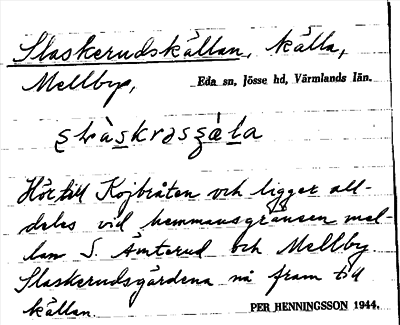 Slaskerudskällan, källa,
Mellby,
Eda sn, Jösse hd, Värmlands län.
Hör till Kojbråten och ligger all-
deles vid hemmansgränsen mel-
lan S. Åmterud och Mellby
Slaskerudsgärdena nå fram till
källan.
PER HENNINGSSON 1944.